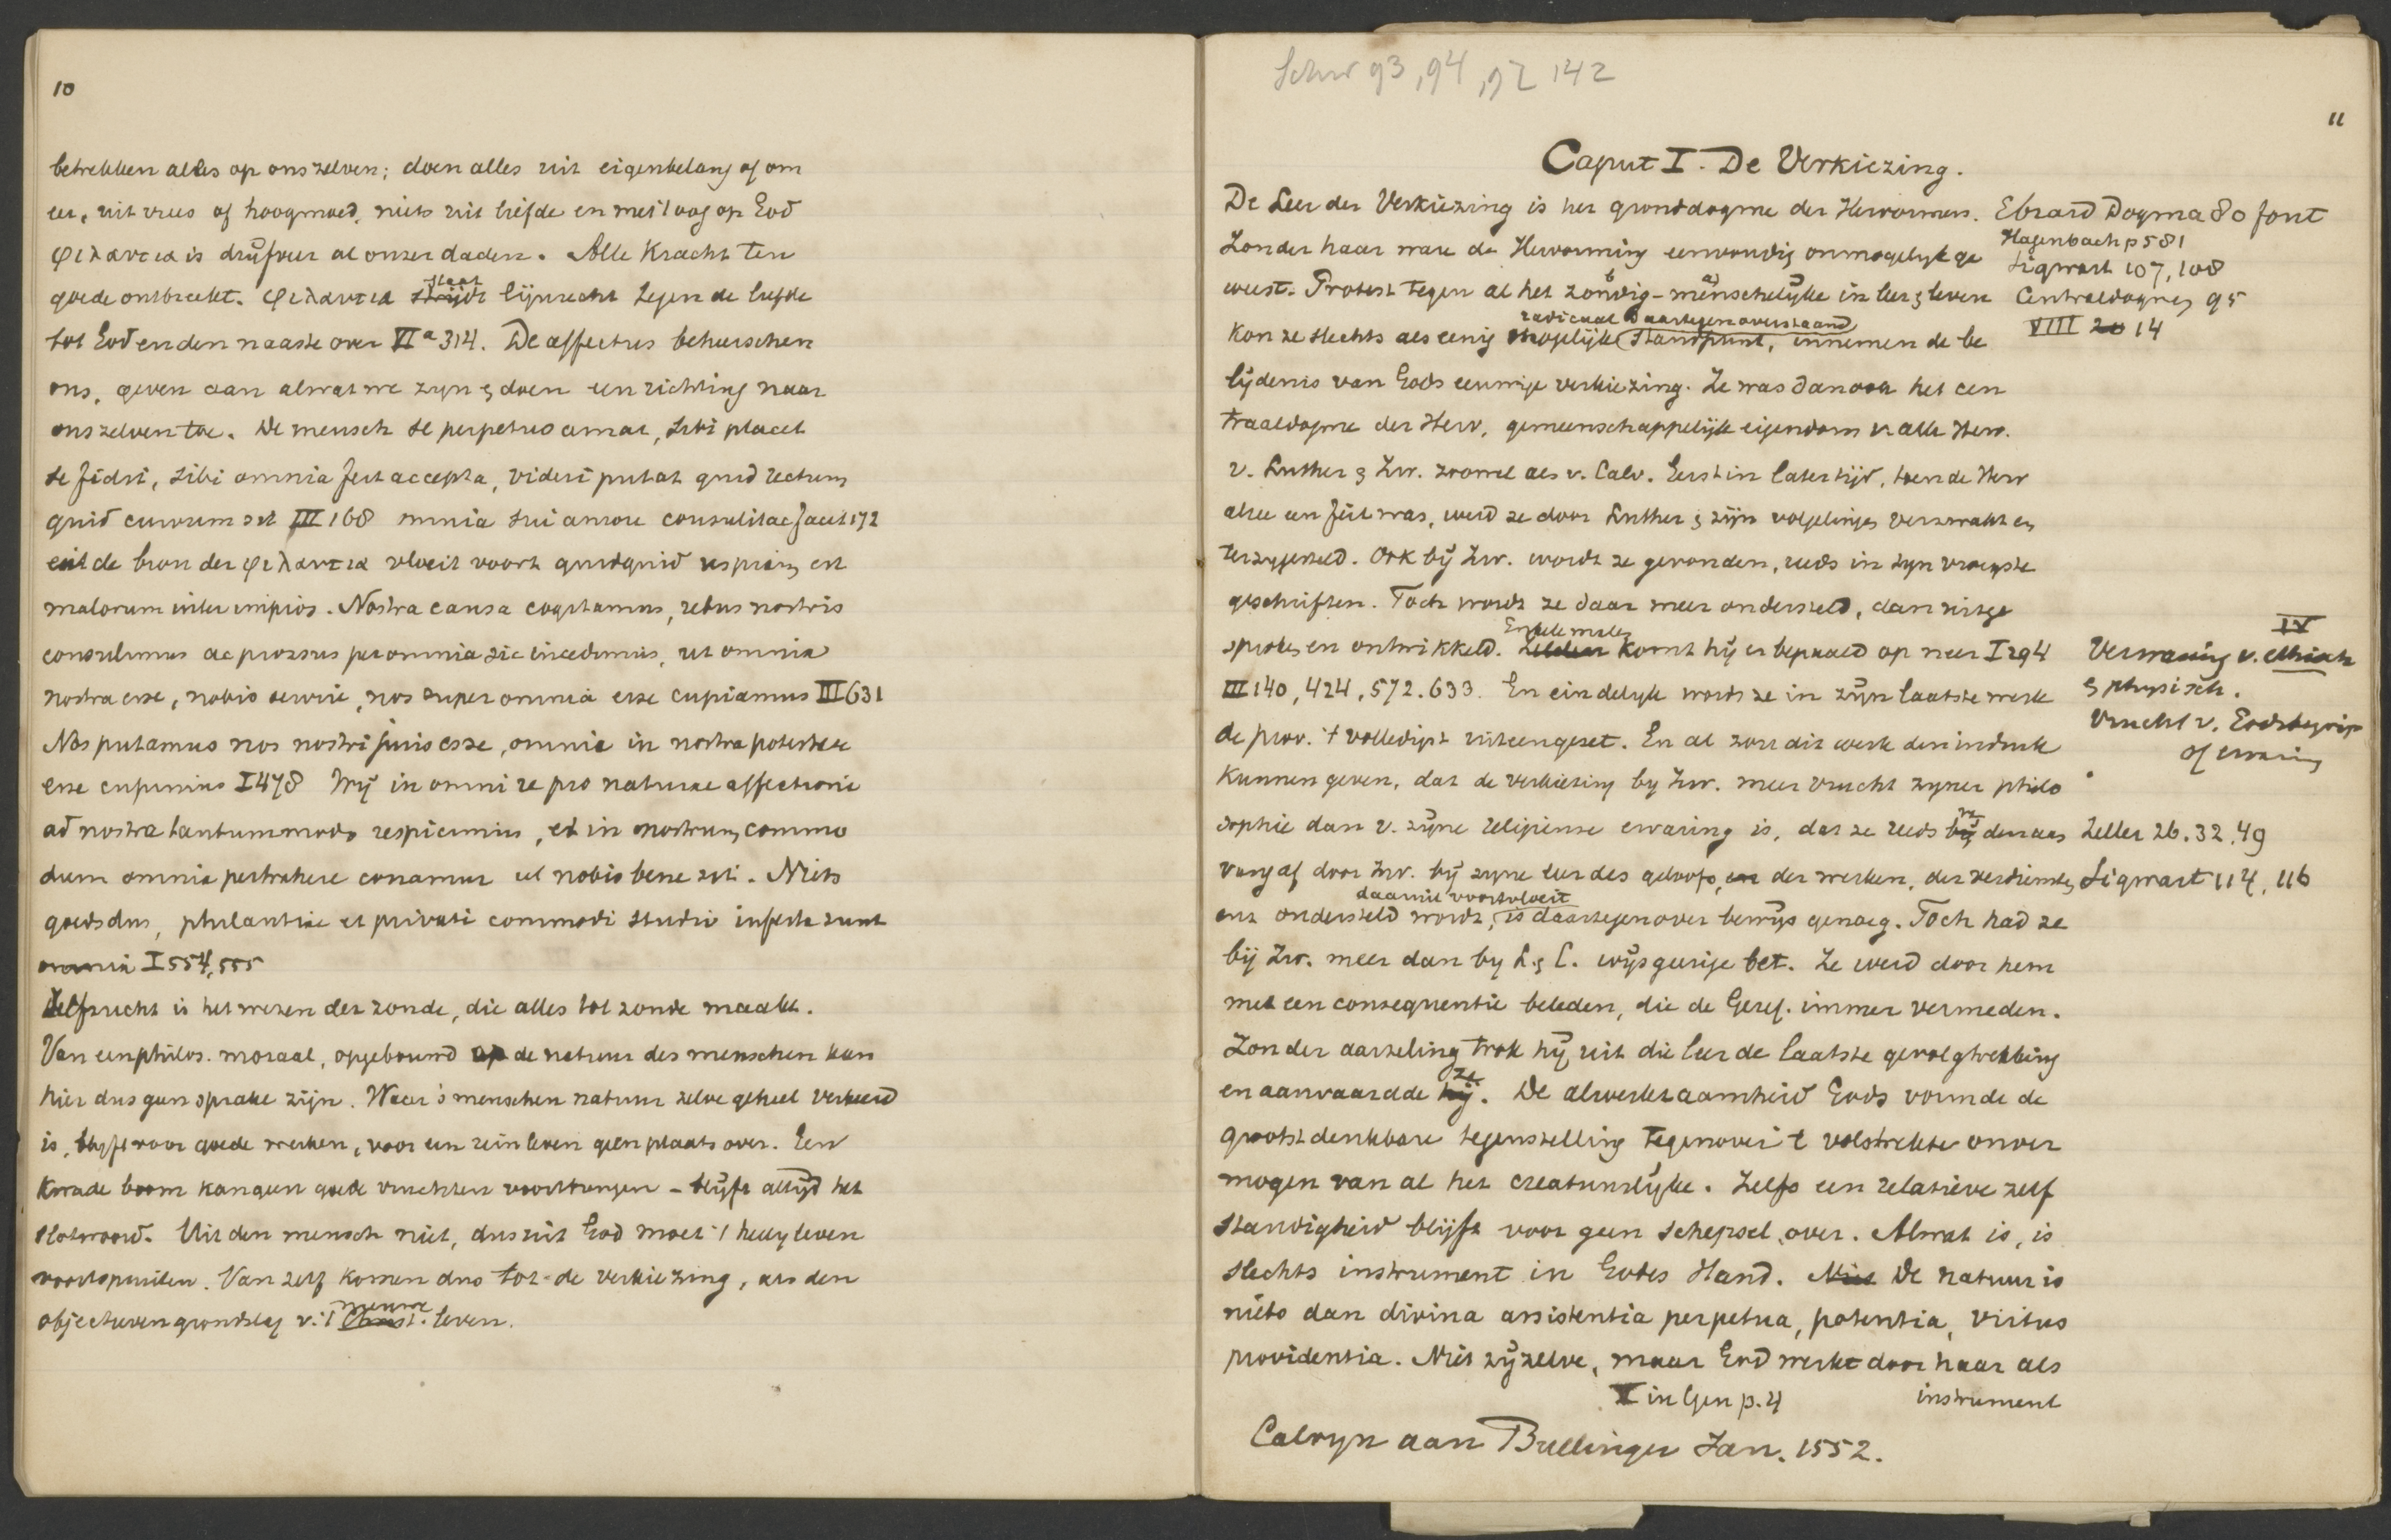 10
betrekken alles op ons zelven; doen alles uit eigenbelang of om
eer, uit vrees of hoogmoed, niets uit liefde en met 't oog op God
φιλαυτια is drijfveer al onzer daden. Alle kracht ten
goede ontbreekt. φιλαυτια staat strijdt lijnrecht tegen de liefde
tot God en den naaste over VI a 314. De affectus beheerschen
ons, geven aan al wat we zijn & doen een richting naar
ons zelven toe. De mensch se perpetuo amat, sibi placet
se fidit, sibi omnia fert accepta, videri putat quid rectum
quid curvum sit III 168 omnia sui amore consulit ac facit 172
uit de bron der φιλαυτια vloeit voort quidquid uspiam est
malorum inter impios. Nostra causa cogitamus, rebus nostris
consulimus ac prorsus per omnia sic incedimus, ut omnia
nostra esse, nobis servire, nos super omnia esse cupiamus III 631
Nos putamus nos nostri juris esse, omnia in nostra potestate
esse cupimus I 478 Wij in omni re pro naturae affectione
ad nostra tantummodo respicimus, et in nostrum commo
dum omnia pertrahere conamur ut nobis bene sit. Niets
goeds dus, philautiae et privati commodi studio infecta sunt
omnia I 554, 555
Zelfzucht is het wezen der zonde, die alles tot zonde maakt.
Van een philos. moraal, opgebouwd op de natuur des menschen kan
hier dus geen sprake zijn. Waar 's menschen natuur zelve geheel verkeerd
is, blijft voor goede werken, voor een rein leven geen plaats over. Een
kwade boom kan geen goede vruchten voortbrengen - blijft altijd het
slotwoord. Uit den mensch niet, dus uit God moet 't heilig leven
voortspruiten. Van zelf komen dus tot de verkiezing, als den
objectieven grondslag v. 't nieuwe Christ. leven.
Schw 93, 94, 97 142
11
Caput I. De Verkiezing.
De Leer der Verkiezing is het gronddogme der Hervormers.
Zonder haar ware de Hervorming eenvoudig onmogelijk ge
weest. Protest tegen al het b zondig - a menschelijke in leer & leven
kon ze slechts als eenig mogelijk radicaal daartegenoverstaand standpunt, innemen de be
lijdenis van Gods eeuwige verkiezing. Ze was dan ook het cen
traaldogme der Herv, gemeenschappelijk eigendom v. alle Herv.
v. Luther & Zw. zoowel als v. Calv. Eerst in later tijd, toen de Herv
alree een feit was, werd ze door Luther & zijn volgelingen verzwakt en
terzijgesteld. Ook bij Zw. wordt ze gevonden, reeds in zijn vroegste
geschriften. Toch wordt ze daar meer ondersteld, dan uitge
sproken en ontwikkeld. Enkele malen Zelden komt hij er bepaald op neer I 294
III 140, 424, 572. 633. En eindelijk wordt ze in zijn laatste werk
de prov. 't volledigst uiteengezet. En al zou dit werk den indruk
kunnen geven, dat de verkiezing bij Zw. meer vrucht zijner philo
sophie dan v. zijne religieuse ervaring is, dat ze reeds bij van den aan
vang af door Zw. bij zijne leer des geloofs, en der werken, der verdiensten
enz ondersteld wordt, daaruit voortvloeit is daartegenover bewijs genoeg. Toch had ze
bij Zw. meer dan bij L. & C. wijsgeerige bet. Ze werd door hem
met een consequentie beleden, die de Geref. immer vermeden.
Zonder aarzeling trok hij uit die leer de laatste gevolgtrekking
en aanvaardde hij ze. De alwerkzaamheid Gods vormde de
grootst denkbare tegenstelling tegenover 't volstrekte onver
mogen van al het creatuurlijke. Zelfs een relatieve zelf
standigheid blijft voor geen schepsel over. Alwat is, is
slechts instrument in Godes Hand. Niet De natuur is
niets dan divina assistentia perpetua, potentia, virtus
providentia. Niet zij zelve, maar God werkt door haar als
V in Gen p. 4 instrument
Calvijn aan Bullinger Jan. 1552.
Ebrard Dogma 80 font
Hagenbach p 581
Sigwart 107, 108
Centraldogmen 95
VIII 20 14
IV
Verwarring v. ethisch
& physisch.
Vrucht v. Godsbegrip
of ervaring
Zeller 26. 32. 49
Sigwart 114, 116